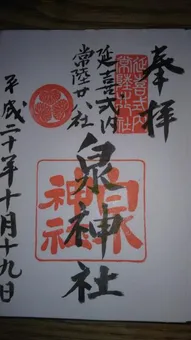 奉拝
延喜式内
常陸廿八社
延喜式内
常陸廿八社
泉神社
泉神社
平成二十年十月十九日